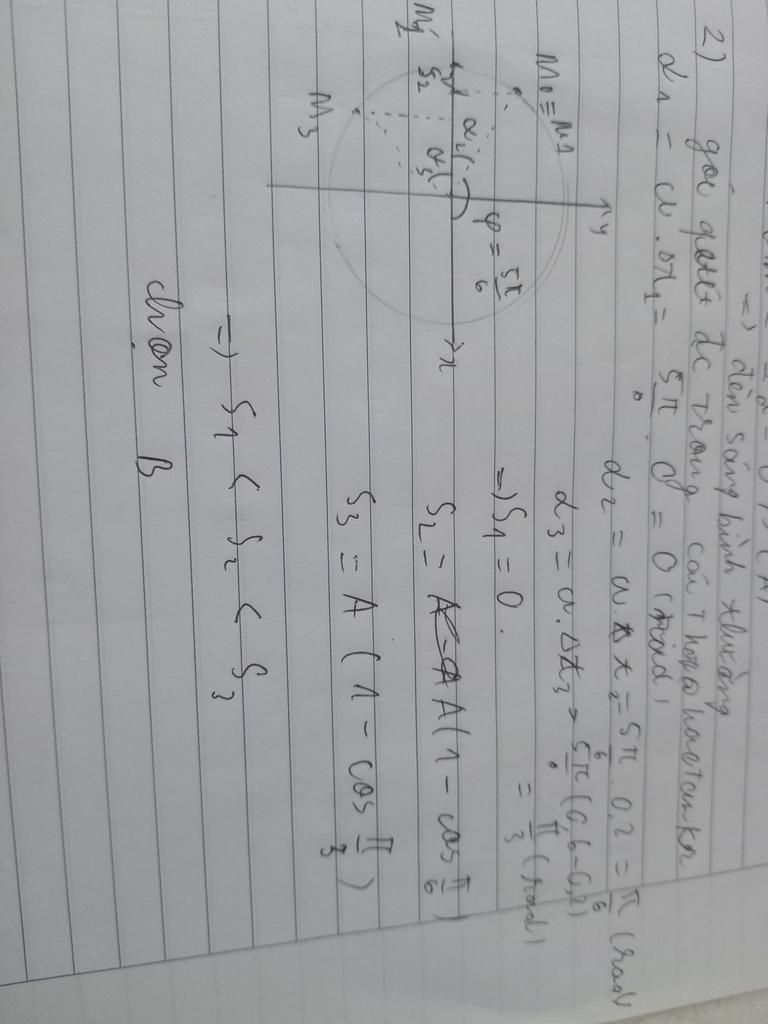 =) đèn sáng bình thường
2) góc quét đc trong các thời
α1 = ω.Δt1 = 5π/6 . 0 = 0 (rad)
α2 = ω.Δt2 = 5π/6 . 0,2 = π/6 (rad)
α3 = ω.Δt3 = 5π/6 (0,6-0,2)
= π/3 (rad)
M0≡M1
y
φ = 5π/6
x
α2
α3
S2
M2
M3
=) S1 = 0.
S2 = A(1 - cos π/6)
S3 = A (1 - cos π/3)
=) S1 < S2 < S3
chọn B